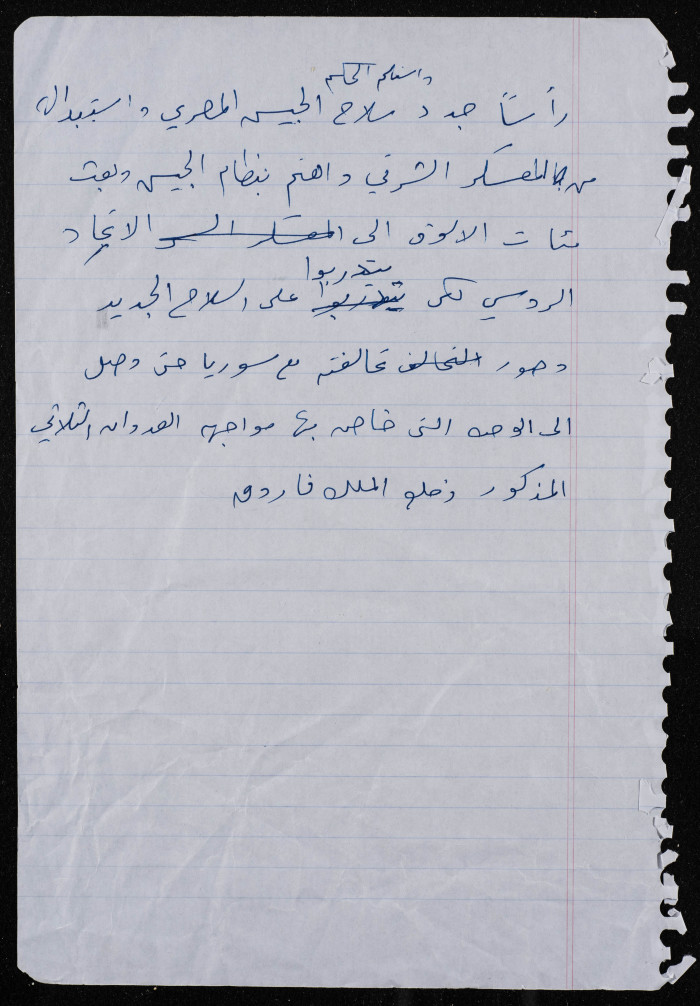 واستلم الحكم
رأساً جدد سلاح الجيش المصري واستبداله
من المعسكر الشرقي واهتم بنظام الجيش وبعث
مئات الالوف الى المعسكر الشر الاتحاد
يتدربوا
الروسي لكي يتدربوا على السلاح الجديد
وصور التحالف تحالفته مع سوريا حتى وصل
الى الوحده التى خاض بها مواجهه العدوان الثلاثي
المذكور وخلع الملك فاروق